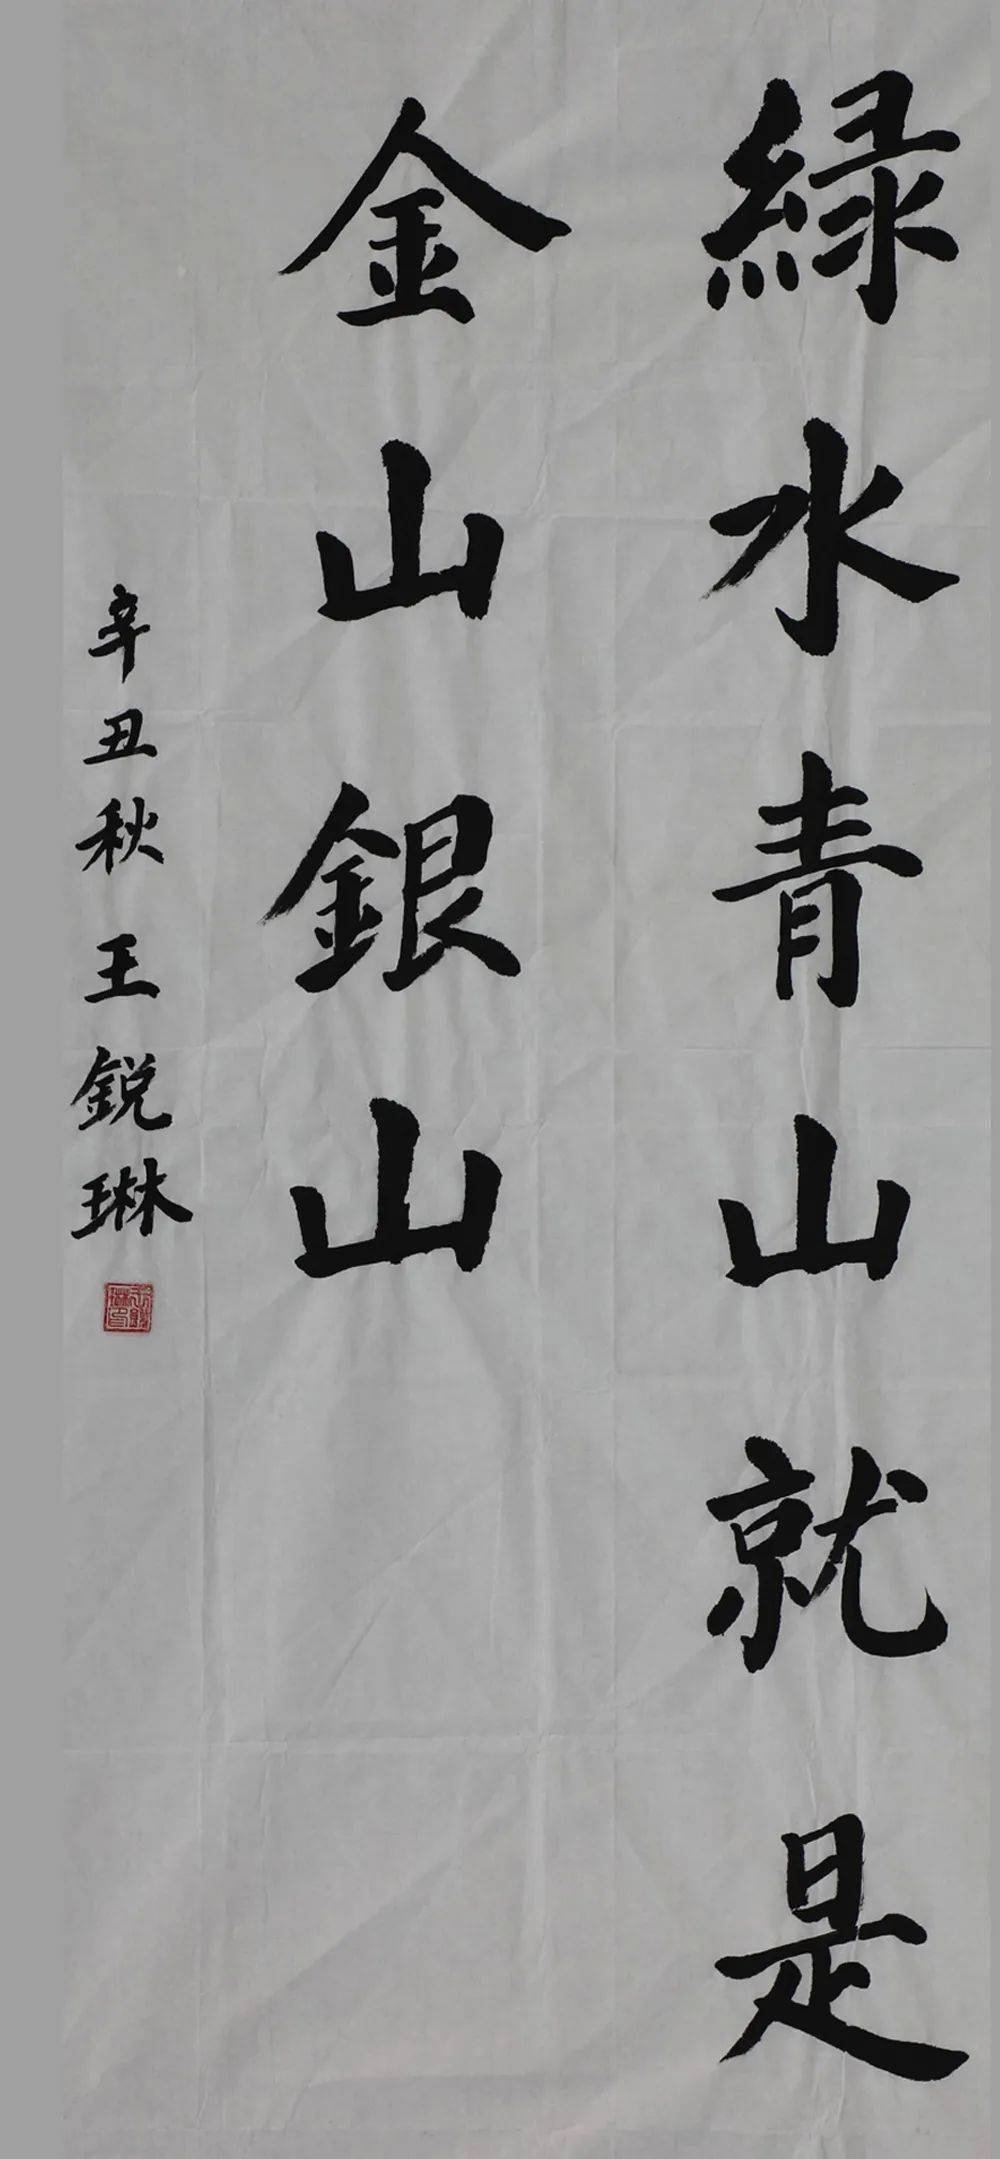 緑水青山就是
金山銀山
辛丑秋王鋭琳